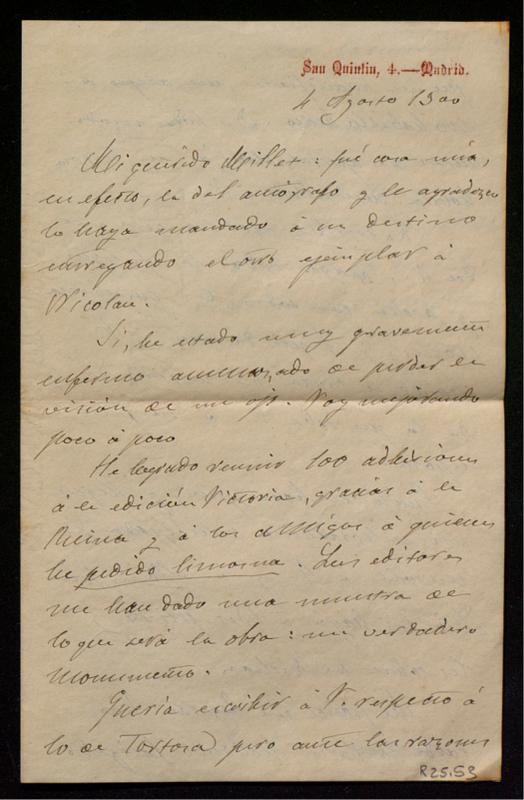 San Quintín, 4.—Madrid.
4 Agosto 1900
Mi querido Millet: fué cosa mía,
en efecto, la del autógrafo y le agradezco
lo haya mandado á su destino
entregando el otro ejemplar á
Nicolau.
Si, he estado muy gravemente
enfermo amenazado de perder la
visión de un ojo. Voy mejorando
poco á poco
He logrado reunir 100 adhesiones
á la edición Victoria, gracias á la
Reina y á los amigos á quienes
he pedido limosna. Los editores
me han dado una muestra de
lo que será la obra: un verdadero
monumento.
Quería escribir á V. respecto á
lo de Tortosa pero ante las razones
R25.53